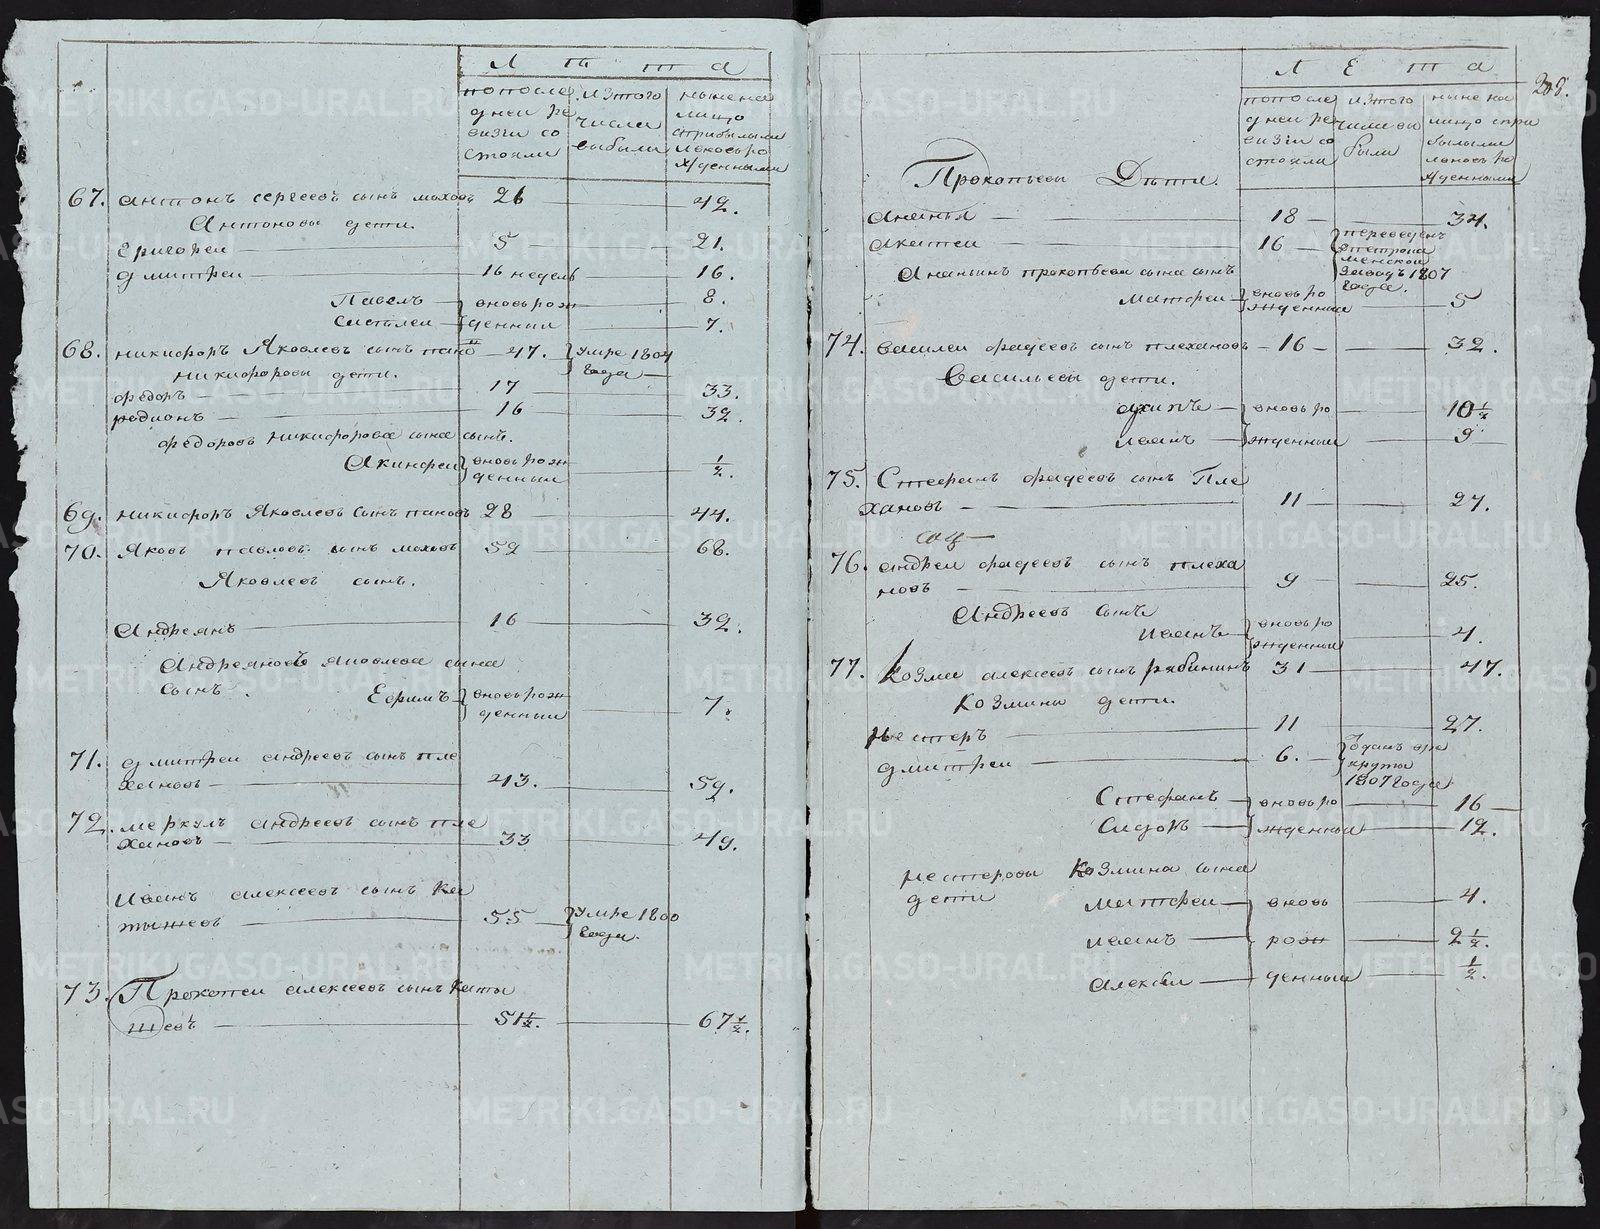 Л ѣ т а
по после
дней ре
визіи со
стояли
изтого
числа
выбыли
ныне на
лицо
сприбылыми
ивновьро
жденными
67. Антонъ сергеевъ сынъ моховъ 26 42.
Антоновы дети.
Григорей 5 21.
дмитрей 16 недель 16.
Павелъ вновь рож 8.
Савелей денныи 7.
68. никифоръ Яковлевъ сынъ пано 47. умре 1804
никифоровы дети. года
федоръ 17 33.
родионъ 16 32.
федоровъ никифорова сына сынъ.
Акинфей вновь рож 1/2.
денныи
69. никифоръ Яковлевъ сынъ пановъ 28 44.
70. Яковъ павловъ сынъ моховъ 52 68.
Яковлевъ сынъ.
Андреянъ 16 32.
Андреяновъ яковлева сына
сынъ.
Ефимъ вновь рож 7.
денныи
71. дмитрей андреевъ сынъ пле
хановъ 43. 59.
72. меркулъ андреевъ сынъ пле
хановъ 33 49.
Иванъ алексеевъ сынъ ка
тышевъ 55 умре 1800
года.
73. Прокопей алексеевъ сынъ каты
шевъ 51 1/2. 67 1/2.
208.
Л е т а
попосле
дней ре
визіи со
стояли
изтого
числа вы
были
ныне на
лицо спри
былыми
ивновь ро
жденными
Прокопьевы Дѣти.
Ананья 18 34.
Акатей 16 переведенъ
менской
заводъ 1807
года.
Ананьинъ прокопьева сына сынъ
Матфей вновь ро 5
жденныи
74. василей фадеевъ сынъ плехановъ 16 32.
Васильевы дети.
архипъ вновь ро 10 1/2
иванъ жденныи 9
75. Стефанъ фадеевъ сынъ Пле
хановъ 11 27.
76. андрей фадеевъ сынъ плеха
новъ 9 25.
Андреевъ сынъ
иванъ вновь ро 4.
жденныи
77. Козма алексеевъ сынъ рябининъ 31 47.
Козмины дети.
Нестеръ 11 27.
дмитрей 6. отданъ вре
круты
1807 года
Стефанъ вновь ро 16
Сидоръ жденныи 12.
Нестеровы Козмина сына
дети
Матфей вновь 4.
иванъ рож 2 1/2.
алексей денныи 1/2.
METRIKI.GASO-URAL.RU